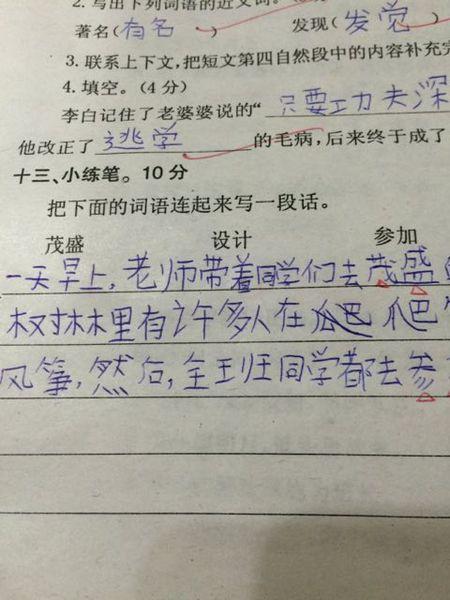 2. 写出下列词语的近义词。
著名(有名 ) 发现(发觉 )
3. 联系上下文,把短文第四自然段中的内容补充完
4. 填空。(4分)
李白记住了老婆婆说的“ 只要功夫深
他改正了 逃学 的毛病,后来终于成了
十三、小练笔。10分
把下面的词语连起来写一段话。
茂盛 设计 参加
一天早上,老师带着同学们去茂盛
树林里有许多人在 爬
风筝,然后,全班同学都去参